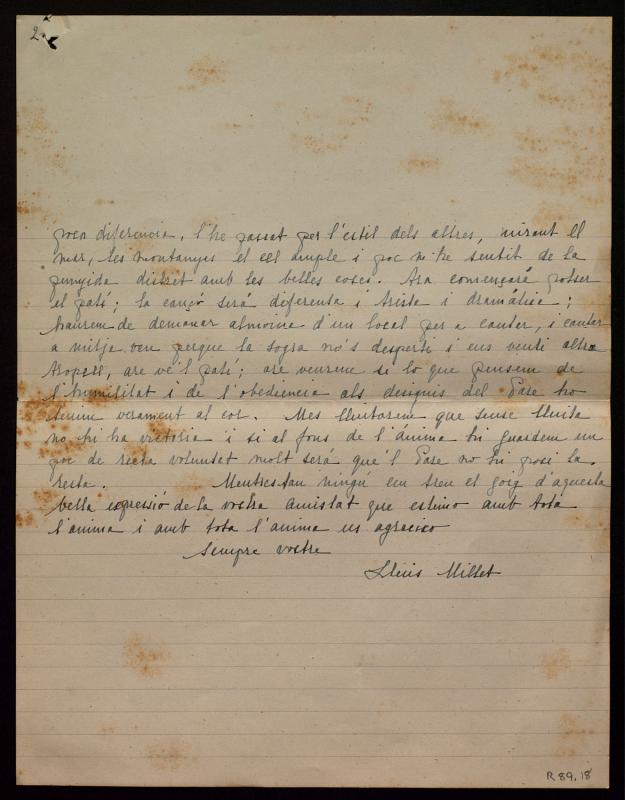 2
poca diferencia, l'he passat per l'estil dels altres, mirant el
mar, les montanyes el cel ample i poc m'he sentit de la
punyida distret amb les belles coses. Ara començará potser
el patí; la cançó será diferenta i trista i dramática;
haurem de demanar almoina d'un local per a cantar, i cantar
a mitja veu perque la sogra no's desperti i ens venti altre
tropell, are vé'l patí; are veurem si lo que pensem de
l'humilitat i de l'obediencia als designis del Pare ho
tenim verament al cor. Mes lluitarem que sense lluita
no hi ha victoria i si al fons de l'ánima hi guardem un
poc de recta voluntat molt será que'l Pare no hi posi la
resta. Mentrestan ningú em treu el goig d'aquesta
bella expressió de la vostra amistat que estimo amb tota
l'anima i amb tota l'anima us agraeixo
Sempre vostre
Lluis Millet
R 89, 18